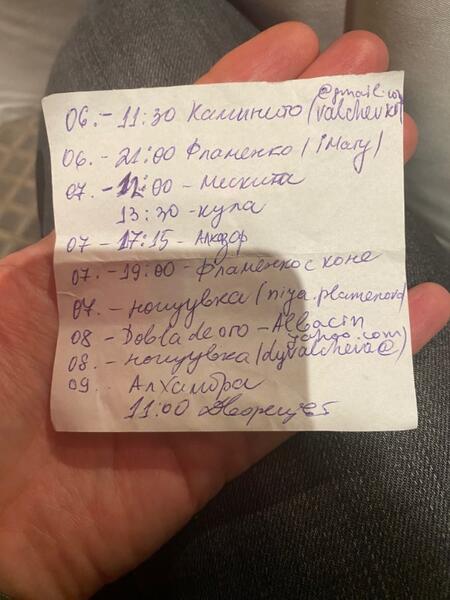 06. – 11:30 Каминито /valchevk
@gmail.com
06. – 21:00 Фламенко / imagy/
07 – 12:00 – Мескита
13:30 – кула
07 – 17:15 – Алказар
07. – 19:00 – Фламенко с коне
07. – нощувка /niya.plamenova
08 – Dobla de oro – Albacin
08. – нощувка /dyvalcheva@)
yahoo.com
09.. Алхамбра
11:00 Дворецът